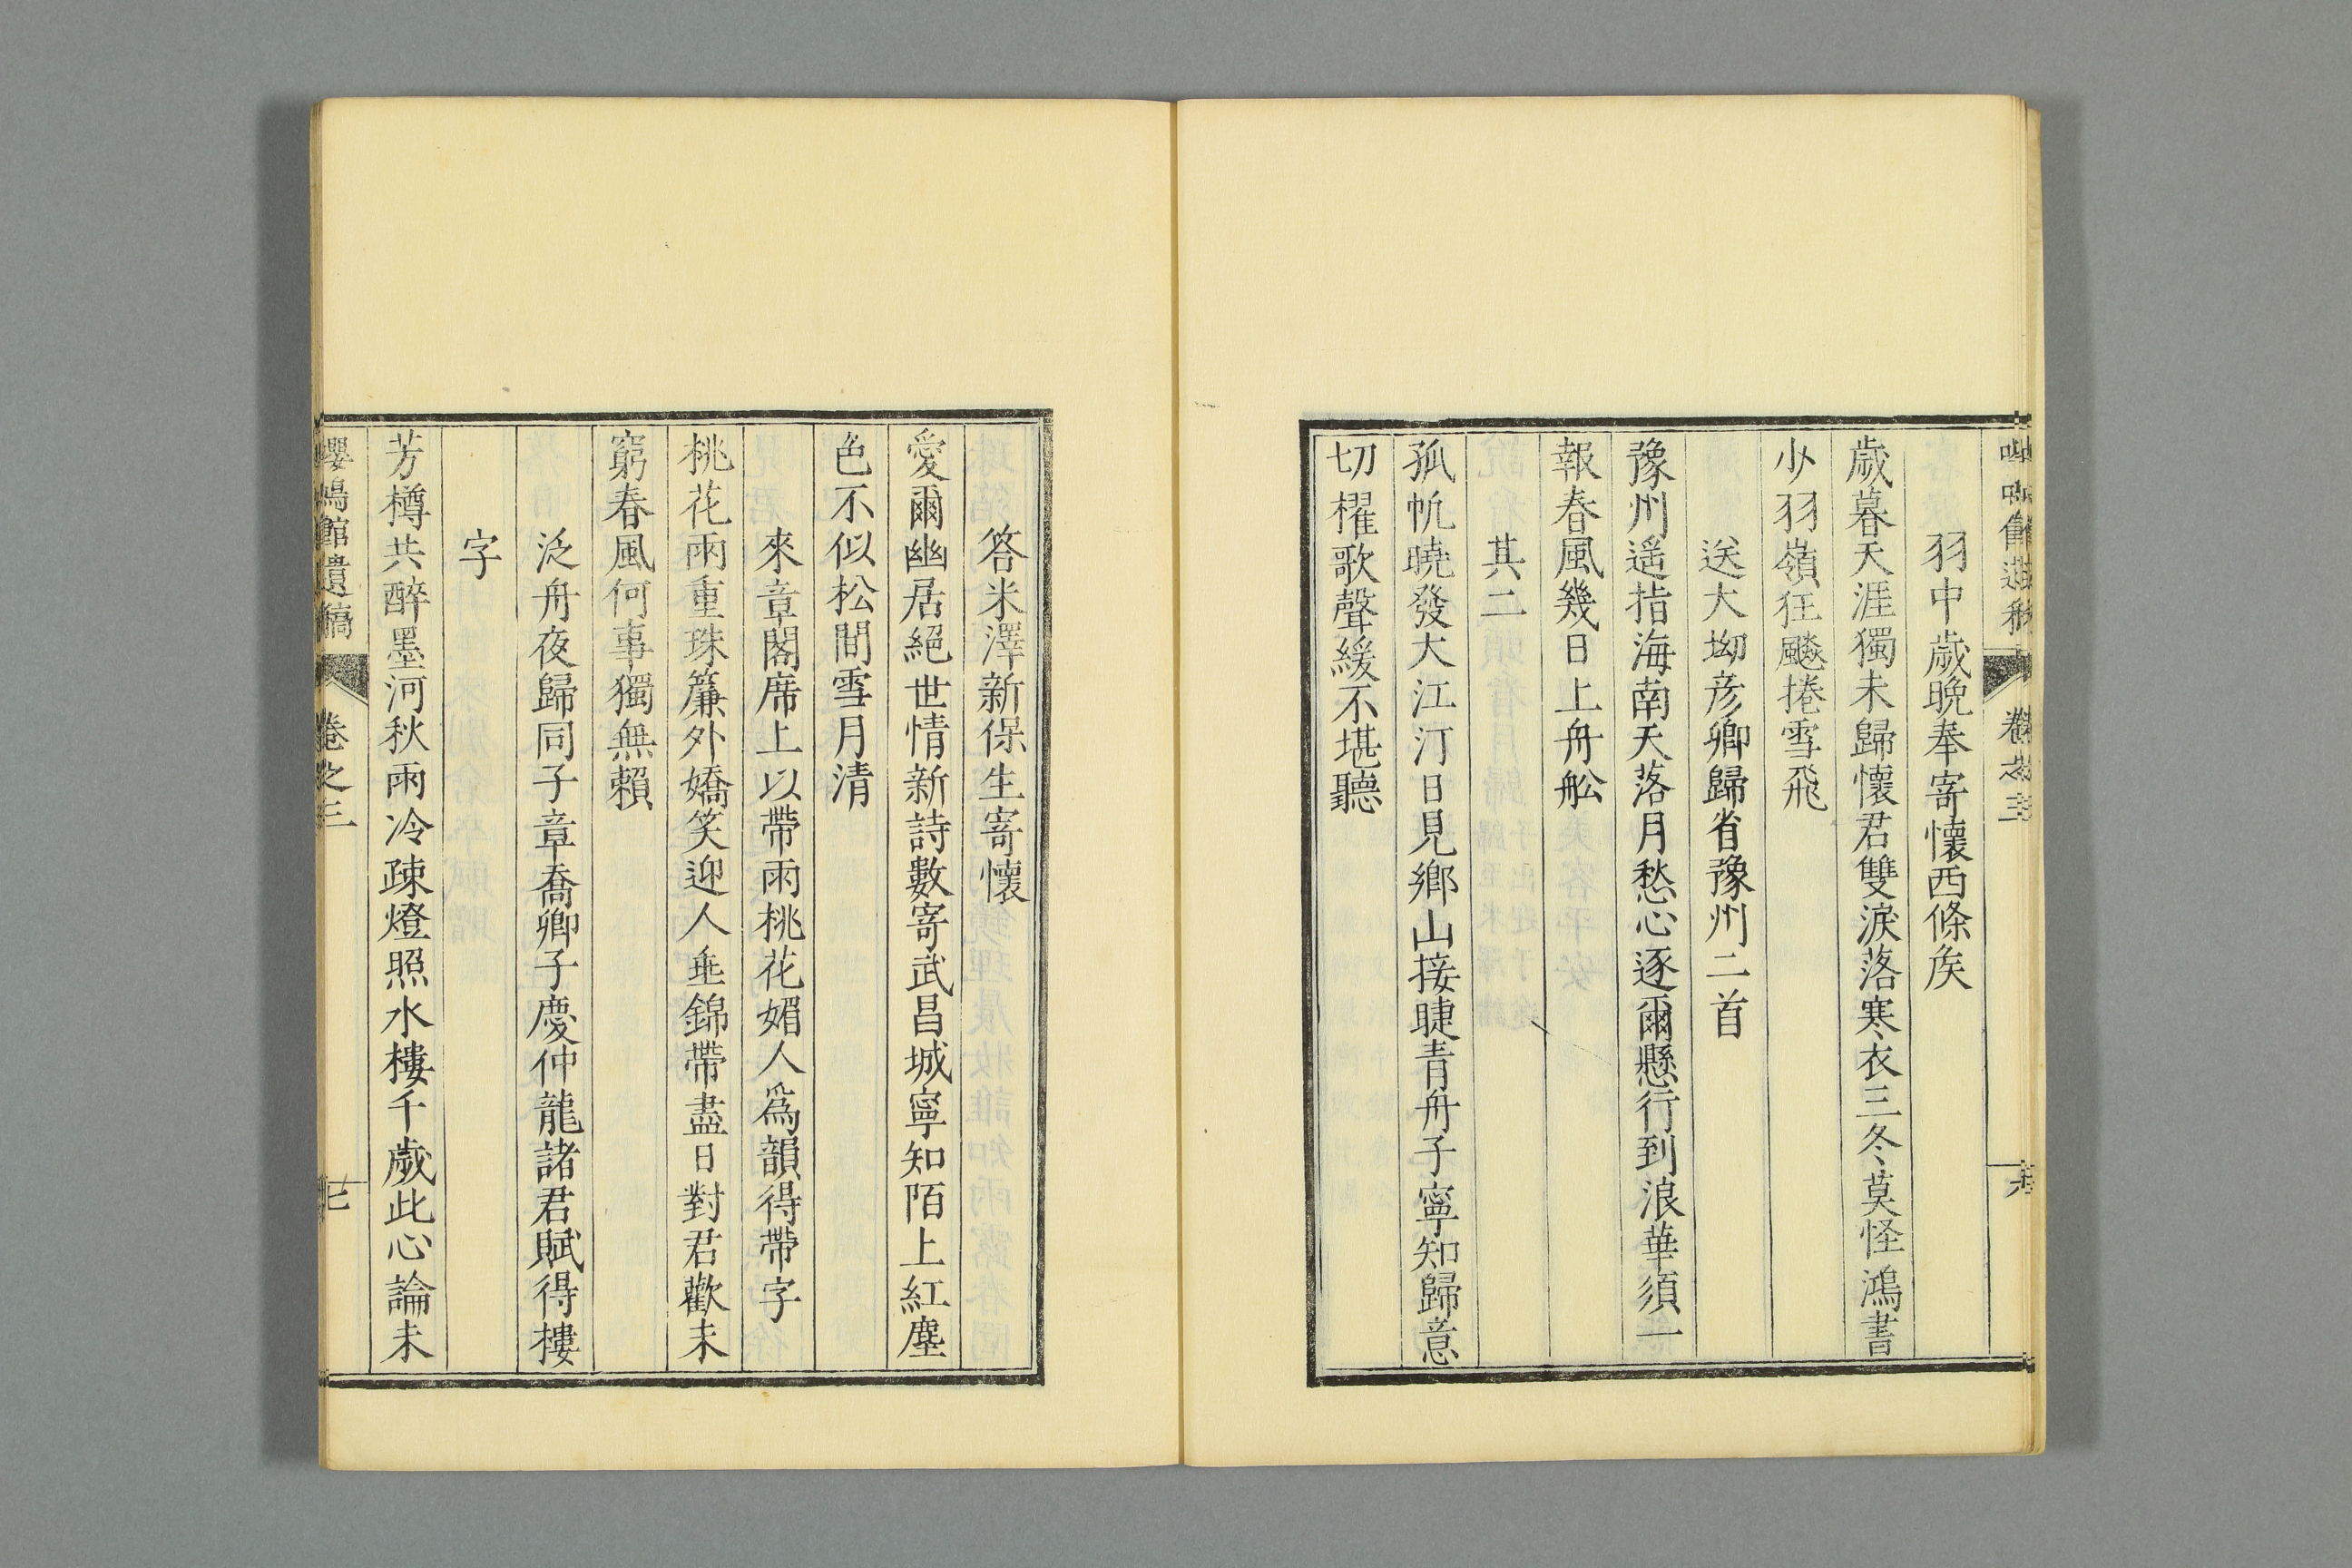 羽中歲晩奉寄懷西條矦
歲暮天涯獨未歸懷君雙淚落寒衣三冬莫怪鴻書
少羽嶺狂飇捲雪飛
送大坳彦卿歸省豫州二首
豫州遥指海南天落月愁心逐爾懸行到浪華須一
報春風幾日上舟舩
其二
孤帆曉發大江汀日見鄉山接睫青舟子寧知歸意
切櫂歌聲緩不堪聽
答米澤新保生寄懷
愛爾幽居絕世情新詩數寄武昌城寧知陌上紅塵
色不似松間雪月清
來章閣席上以帶雨桃花媚人爲韻得帶字
桃花雨重珠簾外嬌笑迎人垂錦帶盡日對君歡未
窮春風何事獨無賴
泛舟夜歸同子章喬卿子慶仲龍諸君賦得樓
字
芳樽共醉墨河秋雨冷疎燈照水樓千歲此心論未
館遺稿 卷之三